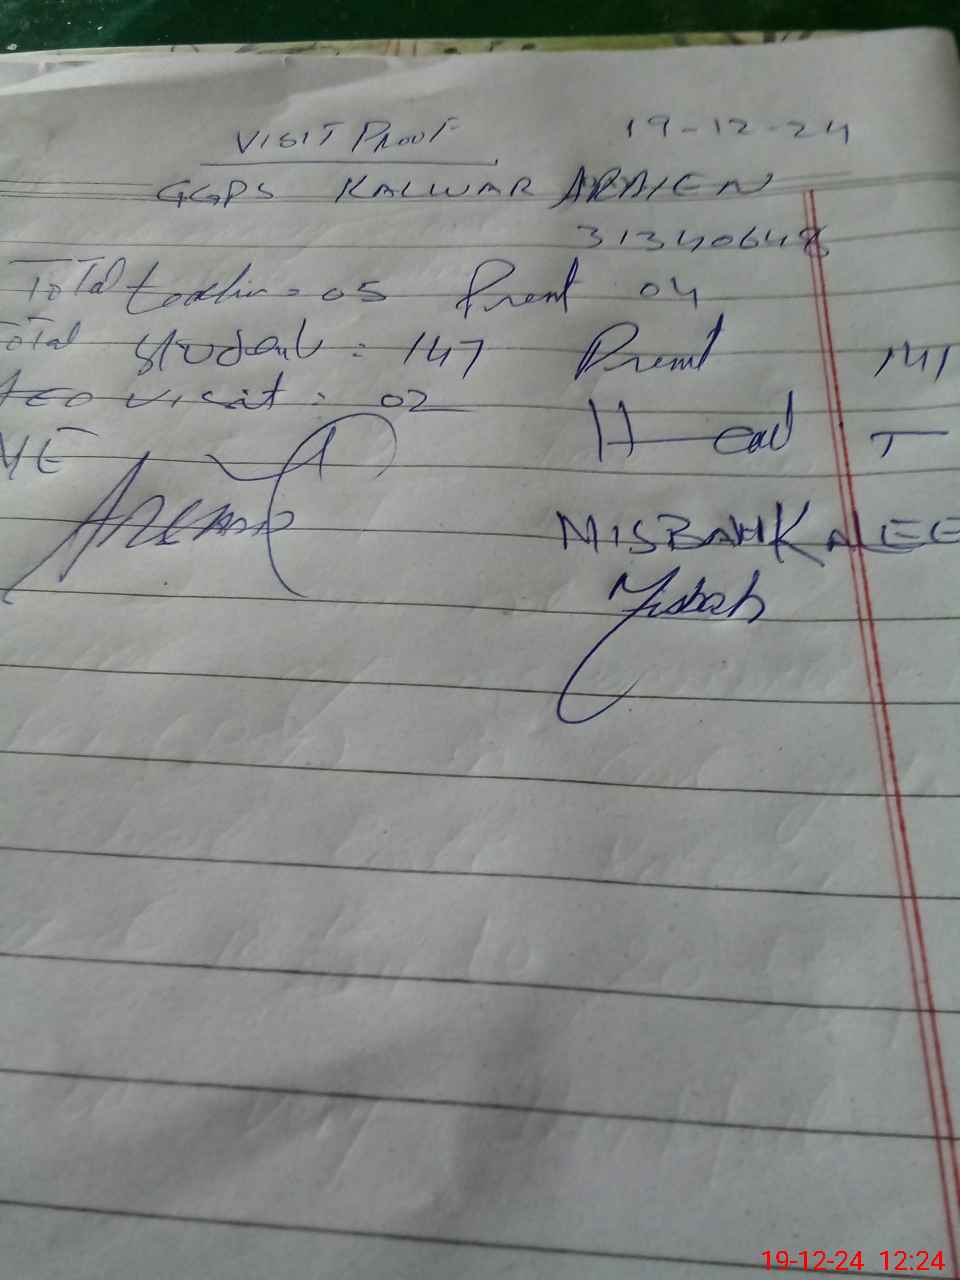 VISIT Proof 19-12-24
GGPS KALWAR ARAIEN
31340648
Total teacher = 05 Present 04
Total student = 147 Present 141
AEO visit = 02 Head T
ME
MISBAH KALEE
Misbah
19-12-24 12:24